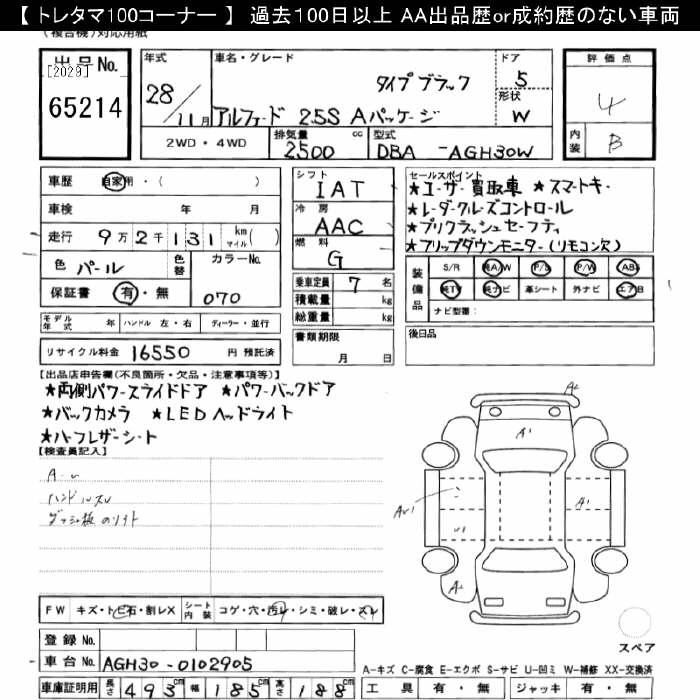 【 トレタマ100コーナー 】 過去100日以上 AA出品歴or成約歴のない車両
(複合機)対応用紙
出品No.
[2029]
65214
年式
28/11月
車名・グレード
タイプブラック
アルファード 2.5S Aパッケージ
ドア
5
形状
W
評価点
4
内装
B
2WD・4WD
排気量
2500 cc
型式
DBA -AGH30W
車歴 自家用・( )
車検 年 月
走行 9万2千131 km マイル( )
色 パール
色替
カラーNo.
070
保証書 有・無
シフト
IAT
冷房
AAC
燃料
G
乗車定員 7 名
積載量 kg
総重量 kg
セールスポイント
★ユーザー買取車 ★スマートキー
★レーダークルーズコントロール
★プリクラッシュセーフティ
★フリップダウンモニター(リモコン欠)
装備品
S/R 純A/W P/S P/W ABS
純TV 純ナビ 革シート 外ナビ エアB
ナビ型番:
モデル年式 年 ハンドル 左・右 ディーラー・並行
リサイクル料金 16550 円 預託済
書類期限
月 日
後日品
【出品店申告欄(不良箇所・欠品・注意事項等)】
★両側パワースライドドア ★パワーバックドア
★バックカメラ ★LEDヘッドライト
★ハーフレザーシート
【検査員記入】
ハンドルスレ
A2
A1
A1
A2
FW キズ・トビ石・割レX
シート内装
コゲ・穴・汚レ・シミ・破レ・スレ
登録No.
車台No. AGH30-0102905
車庫証明用 長さ 493cm 幅 185cm 高さ 188cm
スペア
A-キズ C-腐食 E-エクボ S-サビ U-凹ミ W-補修 XX-交換済
工具 有・無 ジャッキ 有・無